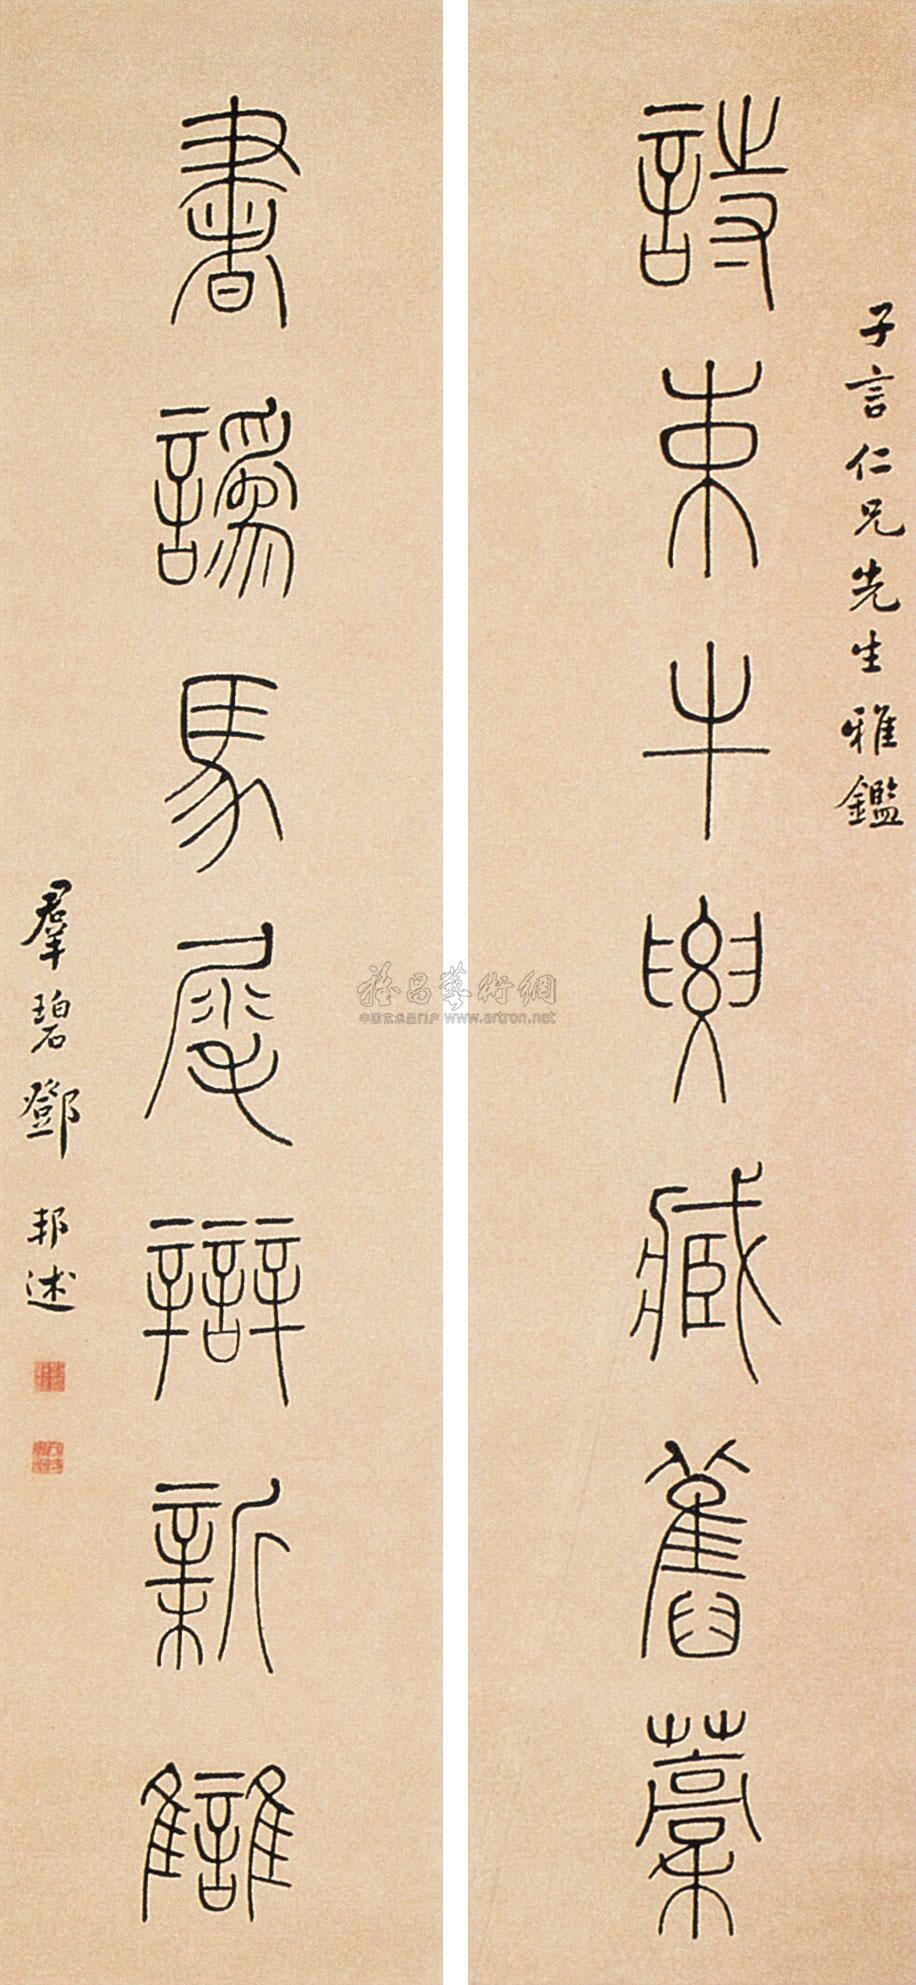 子言仁兄先生雅鑑
詩束牛要藏舊藁
書譌馬尾辯新讎
羣碧鄧邦述
雅昌藝術網
中国艺术品门户 www.artron.net